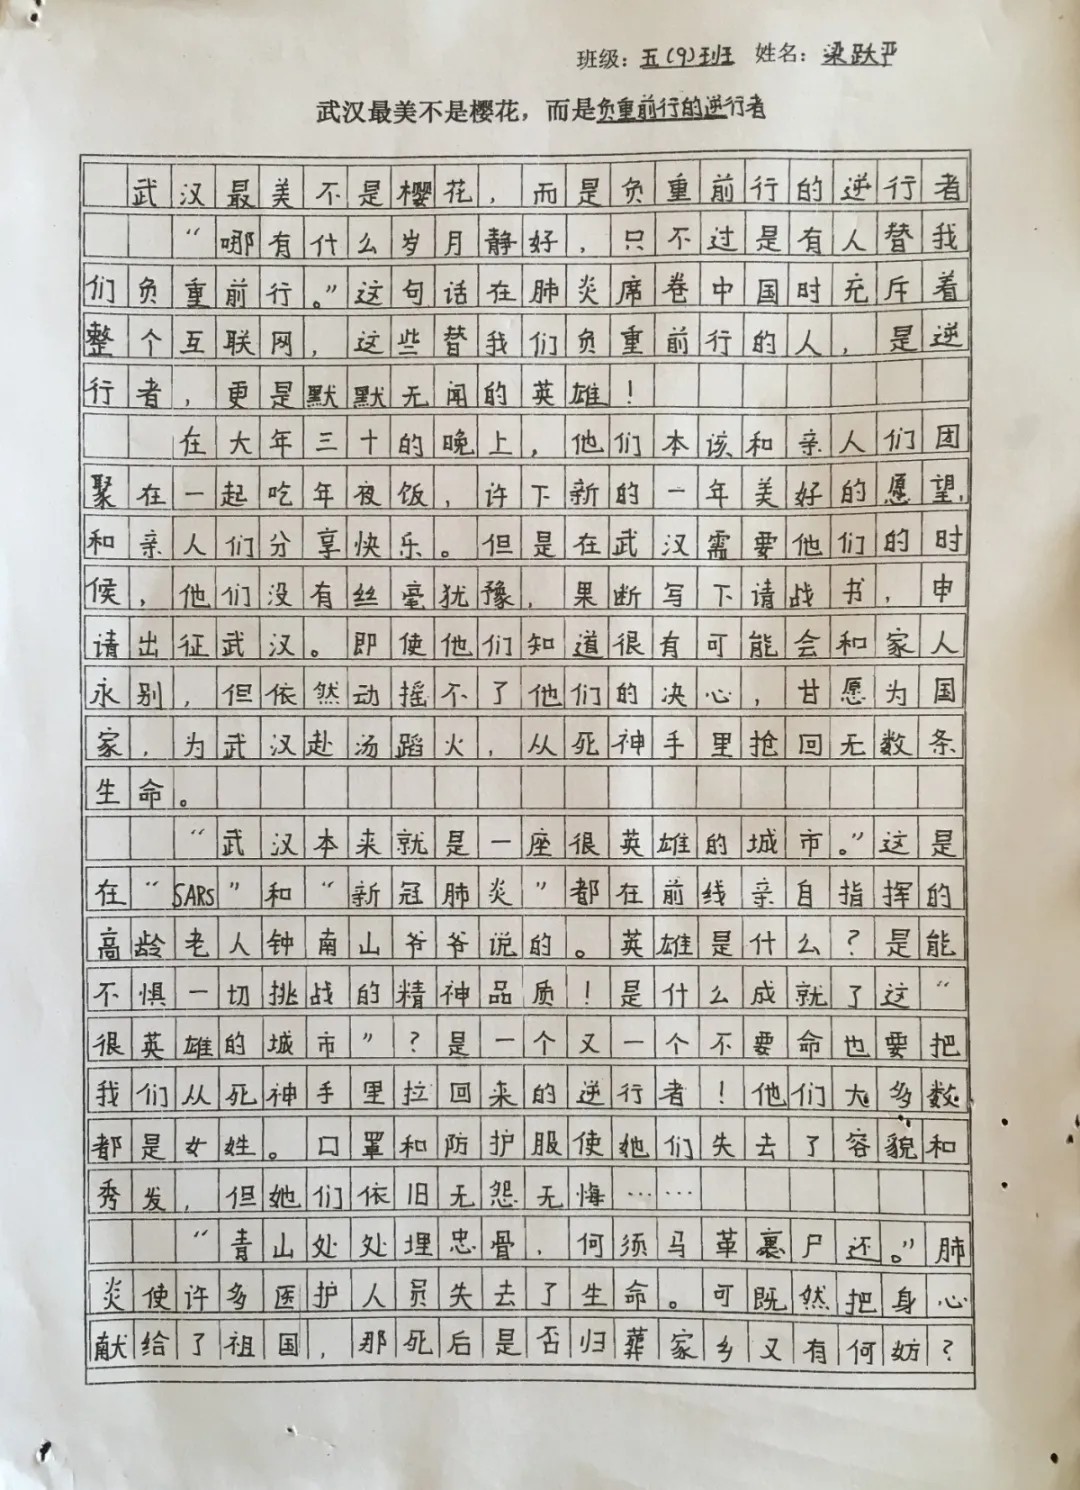 班级：五(9)班 姓名：梁跃严
武汉最美不是樱花，而是负重前行的逆行者
武汉最美不是樱花，而是负重前行的逆行者
“哪有什么岁月静好，只不过是有人替我
们负重前行。”这句话在肺炎席卷中国时充斥着
整个互联网，这些替我们负重前行的人，是逆
行者，更是默默无闻的英雄！
在大年三十的晚上，他们本该和亲人们团
聚在一起吃年夜饭，许下新的一年美好的愿望，
和亲人们分享快乐。但是在武汉需要他们的时
候，他们没有丝毫犹豫，果断写下请战书，申
请出征武汉。即使他们知道很有可能会和家人
永别，但依然动摇不了他们的决心，甘愿为国
家，为武汉赴汤蹈火，从死神手里抢回无数条
生命。
“武汉本来就是一座很英雄的城市。”这是
在“SARS”和“新冠肺炎”都在前线亲自指挥的
高龄老人钟南山爷爷说的。英雄是什么？是能
不惧一切挑战的精神品质！是什么成就了这“
很英雄的城市”？是一个又一个不要命也要把
我们从死神手里拉回来的逆行者！他们大多数
都是女姓。口罩和防护服使她们失去了容貌和
秀发，但她们依旧无怨无悔……
“青山处处埋忠骨，何须马革裹尸还。”肺
炎使许多医护人员失去了生命。可既然把身心
献给了祖国，那死后是否归葬家乡又有何妨？